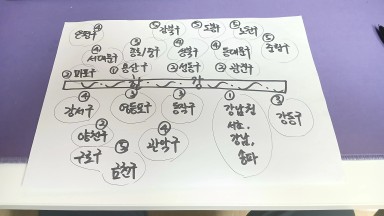 ④ ⑤ ⑤ ⑤
은평구 강북구 도봉구 노원구
④ ③ ④ ④ ⑤
서대문구 종로/중구 성북구 동대문구 중랑구
② ① ② ②
마포구 용산구 성동구 광진구
한 강
④ ③ ③ ① ③
강서구 영등포구 동작구 강남권 강동구
서초,
강남,
송파
②
양천구
④
관악구
구로구
⑤
금천구